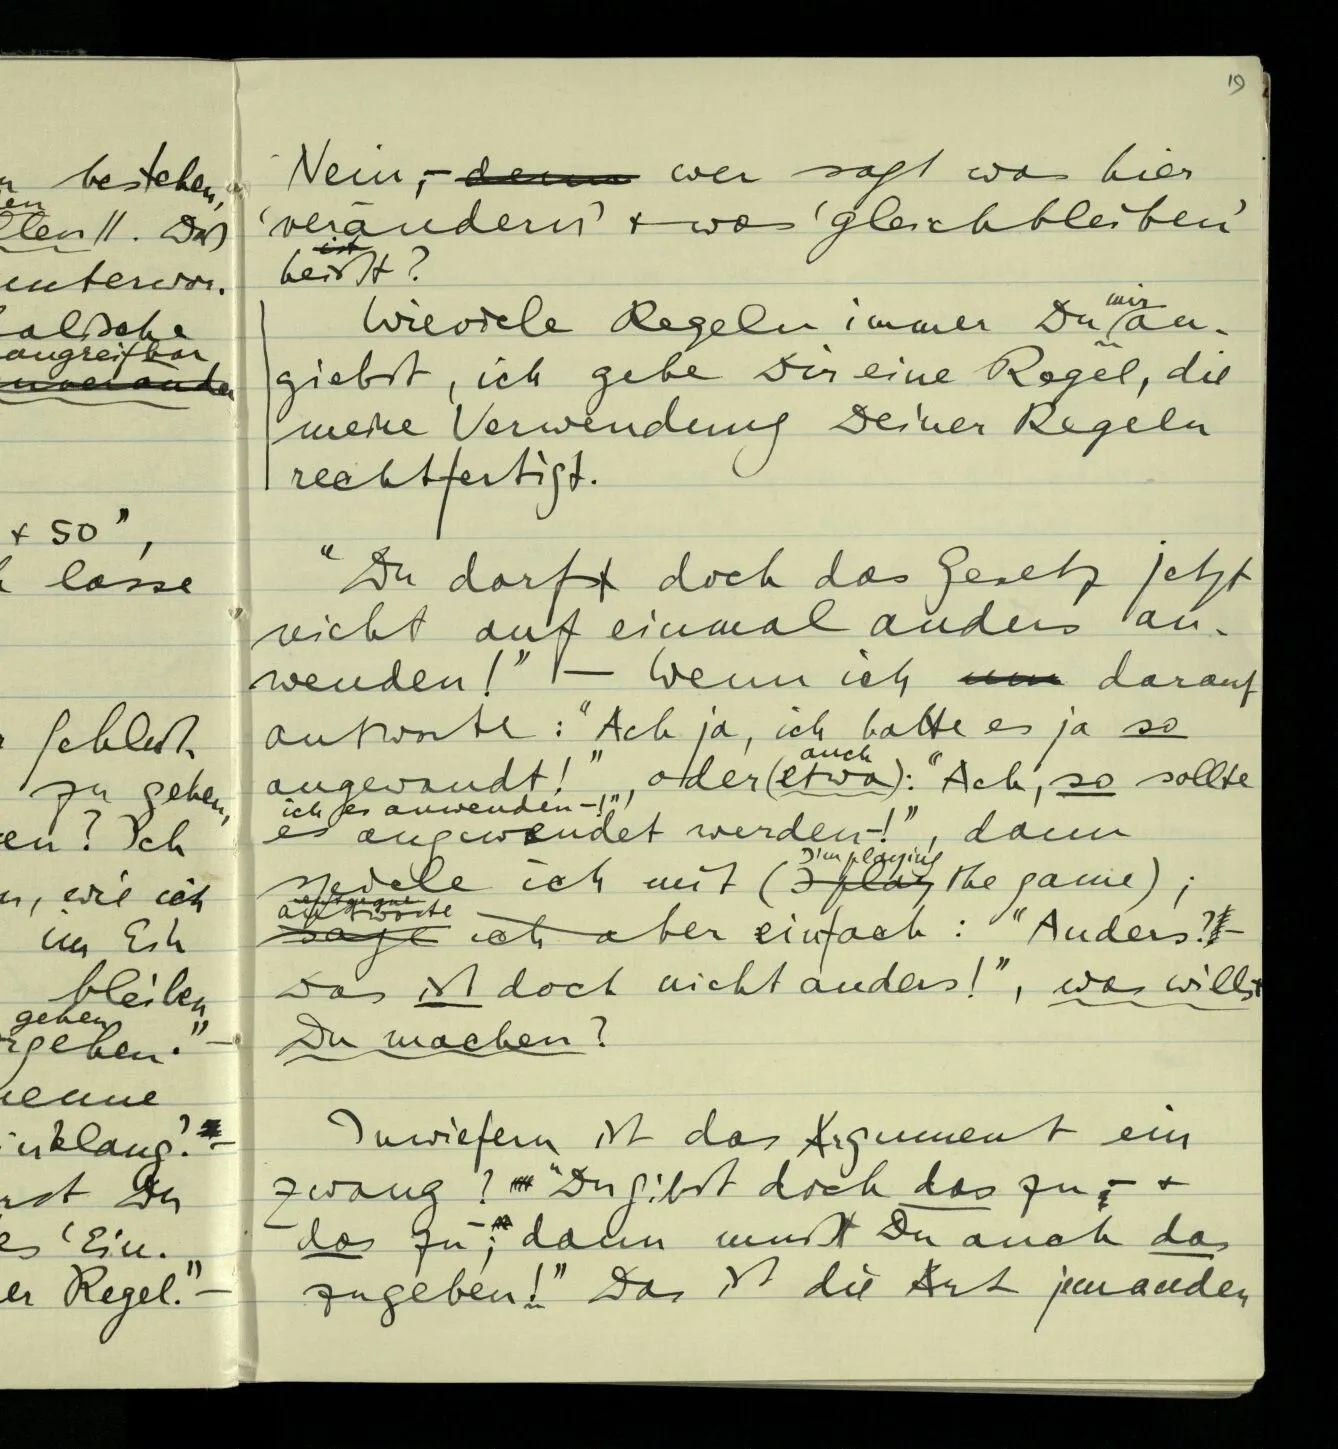 19
bestehen,
Das
unterwor.
alische
angreifbar
+ so",
lasse
zu gehen,
en? Ich
, wie ich
im Ein
bleiben
gehen
gehen."—
nenne
inklang'.—
Du
es 'Ein.
er Regel."—
Nein, – denn wer sagt was hier
'verändern' + was 'gleichbleiben'
ist
heißt?
mir
Wieviele Regeln immer Du an-
giebst, ich gebe Dir eine Regel, die
meine Verwendung Deiner Regeln
rechtfertigt.
"Du darfst doch das Gesetz jetzt
nicht auf einmal anders an-
wenden!" — Wenn ich nun darauf
antworte: "Ach ja, ich hatte es ja so
auch
angewandt!", oder (etwa): "Ach, so sollte
ich es anwenden –!",
es angewendet werden–!", dann
I'm playing
spiele ich mit (I play the game);
entgegne
antworte
sage ich aber einfach: "Anders? –
Das ist doch nicht anders!", was willst
Du machen?
Inwiefern ist das Argument ein
Zwang? "Du gibst doch das zu, – +
das zu –; dann mußt Du auch das
zugeben!" Das ist die Art jemanden